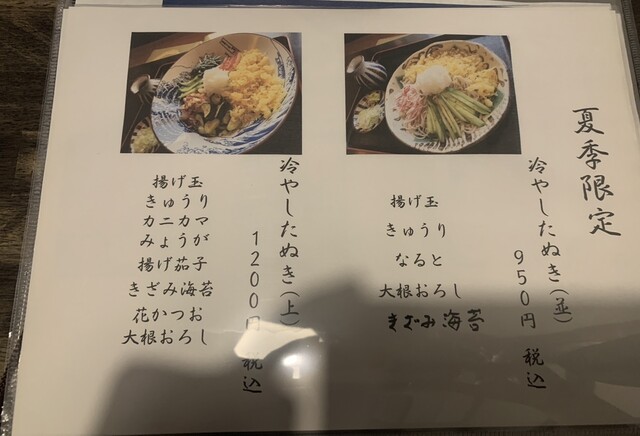 夏季限定
冷やしたぬき(並)
950円 税込
揚げ玉
きゅうり
なると
大根おろし
きざみ海苔
冷やしたぬき(上)
1200円 税込
揚げ玉
きゅうり
カニカマ
みょうが
揚げ茄子
きざみ海苔
花かつお
大根おろし